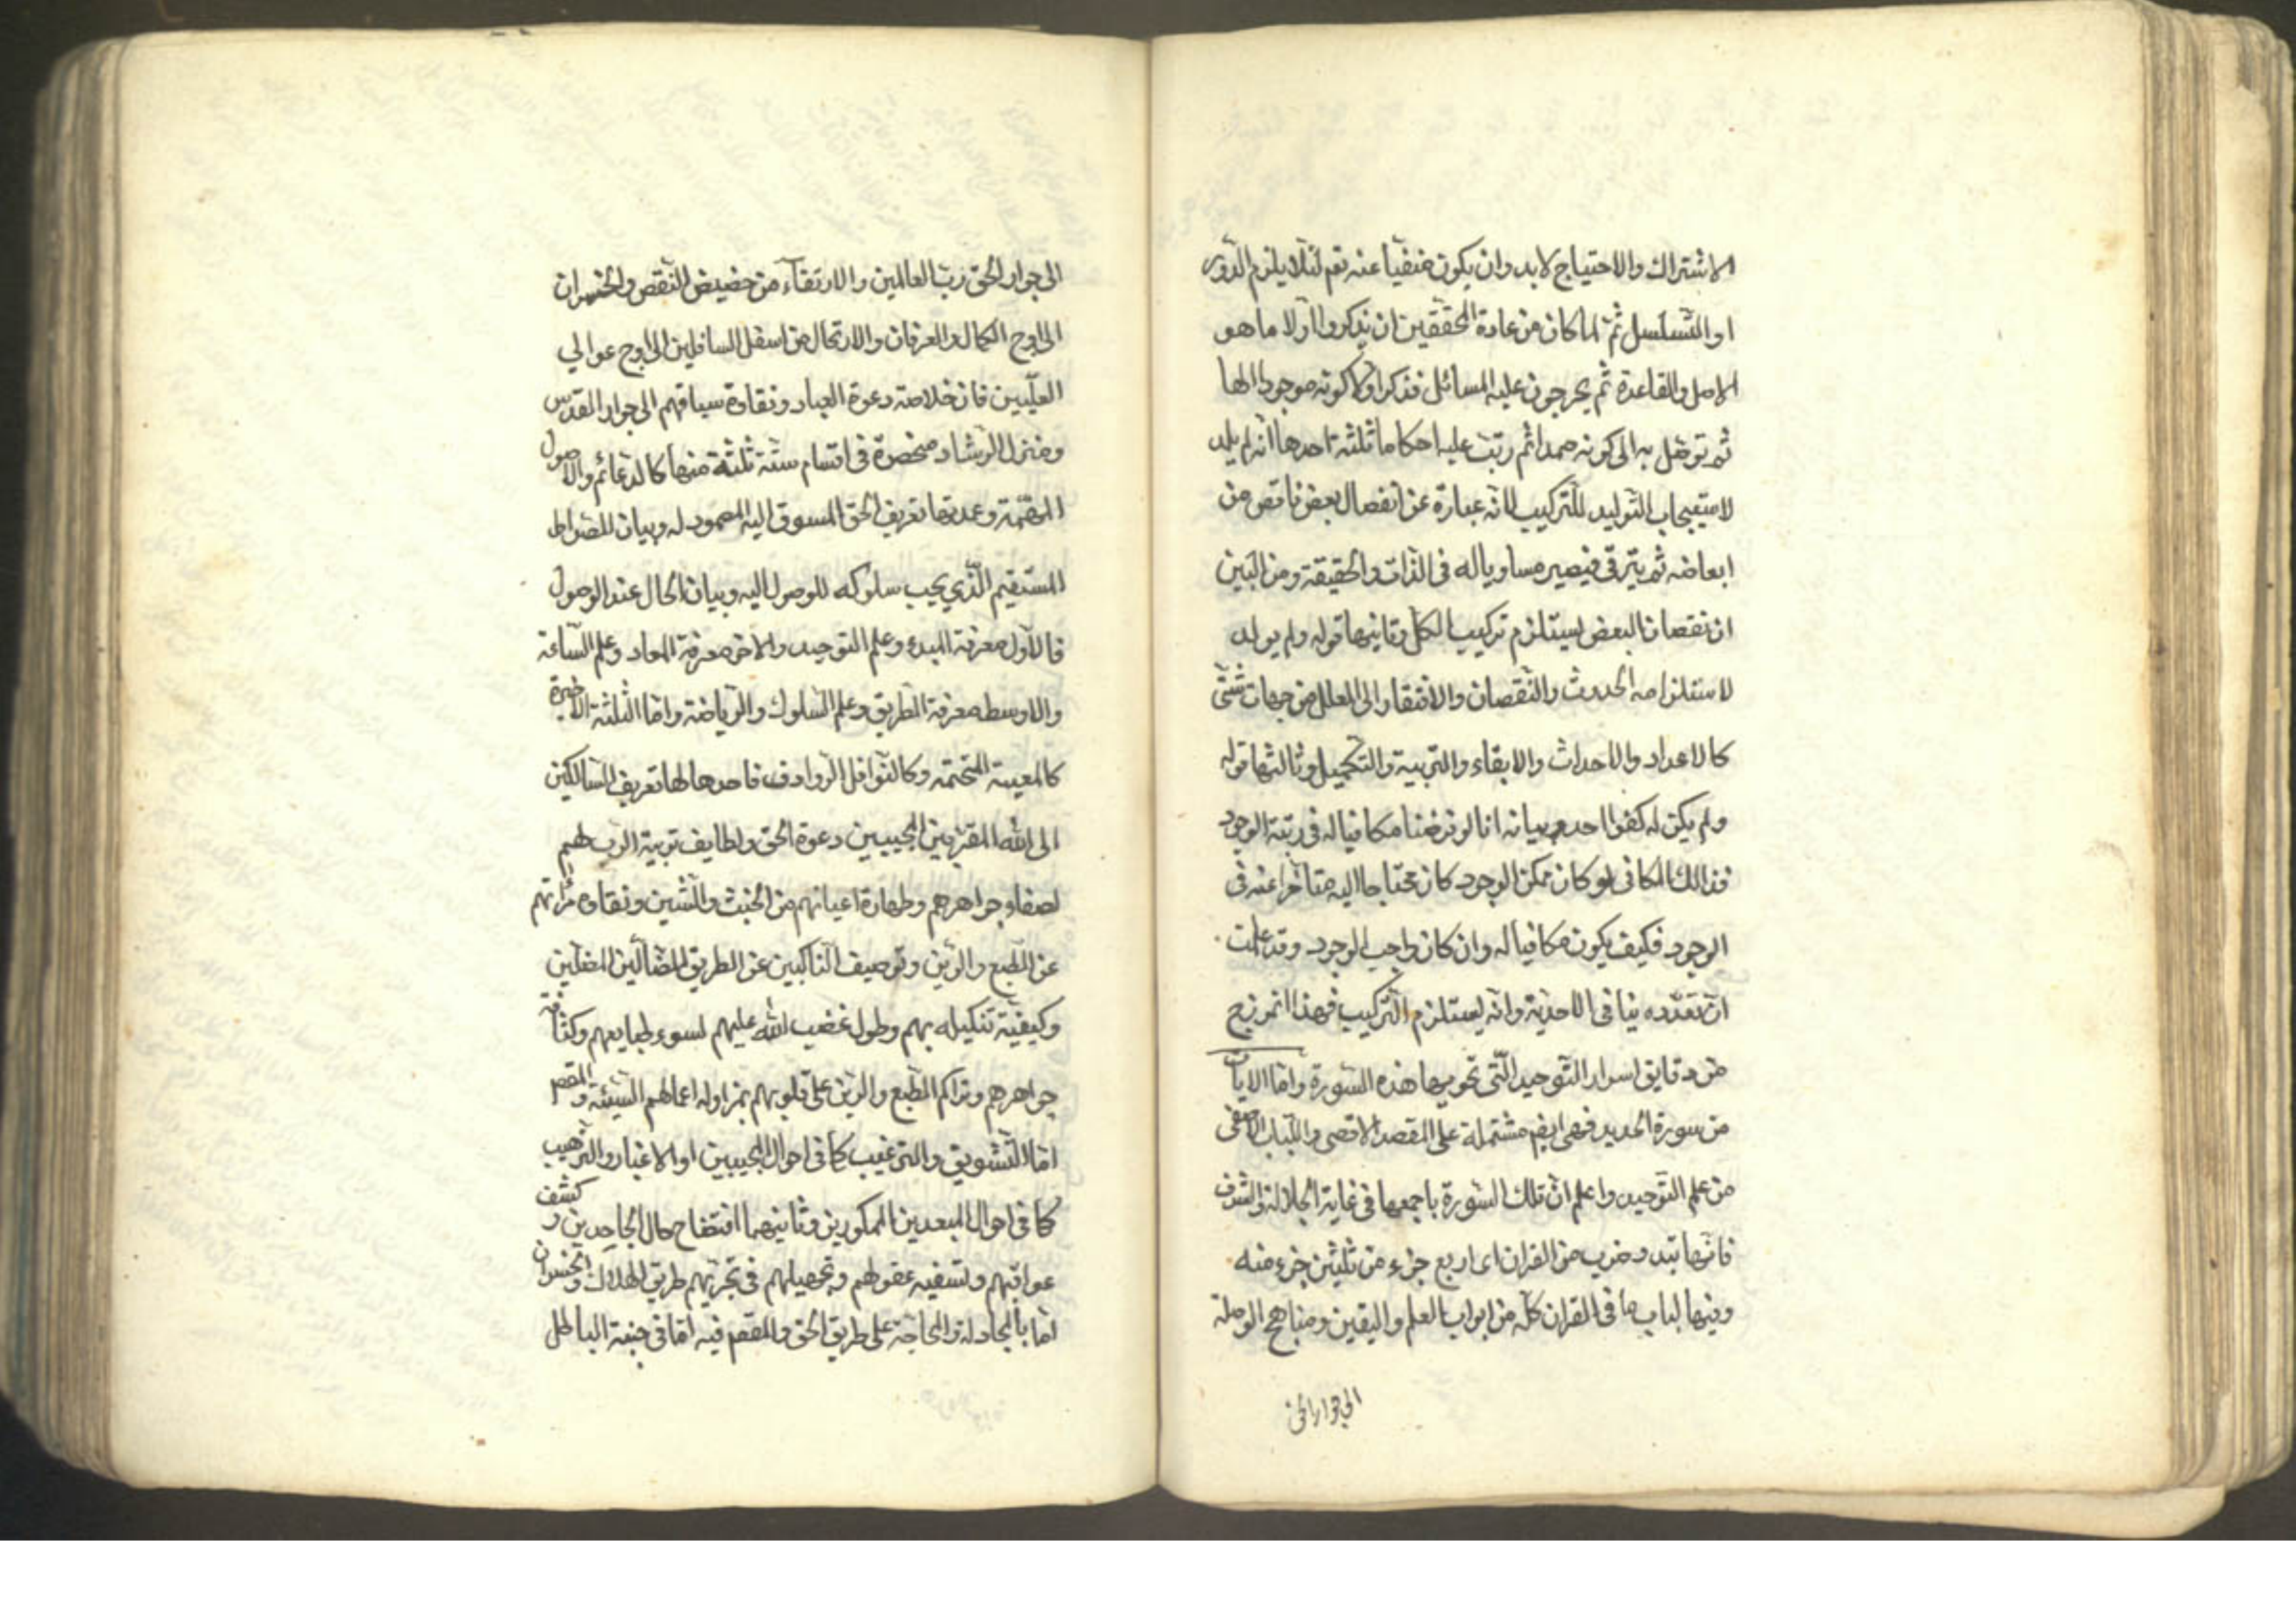 الاشتراك والاحتياج لابد وان يكون منفيا عنه تعم لئلا يلزم الدور
او التسلسل ثم لما كان من عادة المحققين ان يذكروا اولا ما هو
الاصل والقاعدة ثم يخرجون عليه المسائل فذكر اولا كونه موجودا الها
ثم توصل به الى كونه صمدا ثم رتب عليه احكاما ثلثة احدها انه لم يلد
لاستيجاب التوليد للتركيب لانه عبارة عن انفصال بعض ناقص من
ابعاضه ثم يترقى فيصير مساويا له فى الذات والحقيقة ومن البين
ان نقصان البعض يستلزم تركيب الكل وثانيها قوله ولم يولد
لاستلزامه الحدوث والنقصان والافتقار الى العلل من جهات شتى
كالاعداد والاحداث والابقاء والتربية والتكميل وثالثها قوله
ولم يكن له كفوا احد وبيانه انا لو فرضنا مكافيا له فى رتبة الوجود
فذلك المكافى لو كان ممكن الوجود كان محتاجا اليه متاخرا عنه فى
الوجود فكيف يكون مكافيا له وان كان واجب الوجود وقد علمت
ان تعدده ينافى الاحدية وانه يستلزم التركيب فهذا انموزج
من دقايق اسرار التوحيد التى تحويها هذه السورة واما الايات
من سورة الحديد فهى ايضم مشتملة على المقصد الاقصى واللباب الاصفى
من علم التوحيد واعلم ان تلك السورة باجمعها فى غاية الجلالة والشرف
فانها من القران اى اربع جزء من ثلثين جزء منه
وفيها لباب ما فى القران كله من ابواب العلم واليقين ومناهج الوصلة
الى جوار الحق
الى جوار الحق رب العالمين والارتقاء من حضيض النقص والخسران
الى اوج الكمال والعرفان والارتحال من اسفل السافلين الى اوج عوالي
العليين فان خلاصة دعوة العباد ونقاوة سياقهم الى جوار القدس
ومنزل الرشاد منحصرة فى اقسام ستة ثلثة منها كالدعائم والاصول
المهمة وعدتها تعريف الحق المسوق اليه المصمود له وبيان الصراط
المستقيم الذي يجب سلوكه للوصول اليه وبيان الحال عند الوصول
فالاول معرفة المبدء وعلم التوحيد والاخر معرفة المعاد وعلم الساعة
والاوسط معرفة الطريق وعلم السلوك والرياضة واما الثلثة الاخيرة
كالمعينة المتممة وكالنوافل الروادف فاحدها لها تعريف السالكين
الى الله المقربين المجيبين دعوة الحق ولطايف تربية الرب لهم
لصفاء جواهرهم وطهارة اعيانهم من الخبث والشين ونقاوة مرآتهم
عن الطبع والرين وتوصيف الناكبين عن الطريق الضالين المضلين
وكيفية تنكيله بهم وطول غضب الله عليهم لسوء طبايعهم وكثافة
جواهرهم وتراكم الطبع والرين على قلوبهم بمزاوله اعمالهم السيئة والمقصم
اما التشويق والترغيب كما فى احوال المجيبين او الاعتبار والترهيب
كما فى احوال المبعدين الممكورين وثانيهما افتضاح حال الجاحدين وكشف
عواقبهم وتسفيه عقولهم وتجهيلهم فى تحريهم طريق الهلاك والخسران
اما بالمجادلة والمحاجة على طريق الحق والمقصم فيه اما فى جنبة الباطل